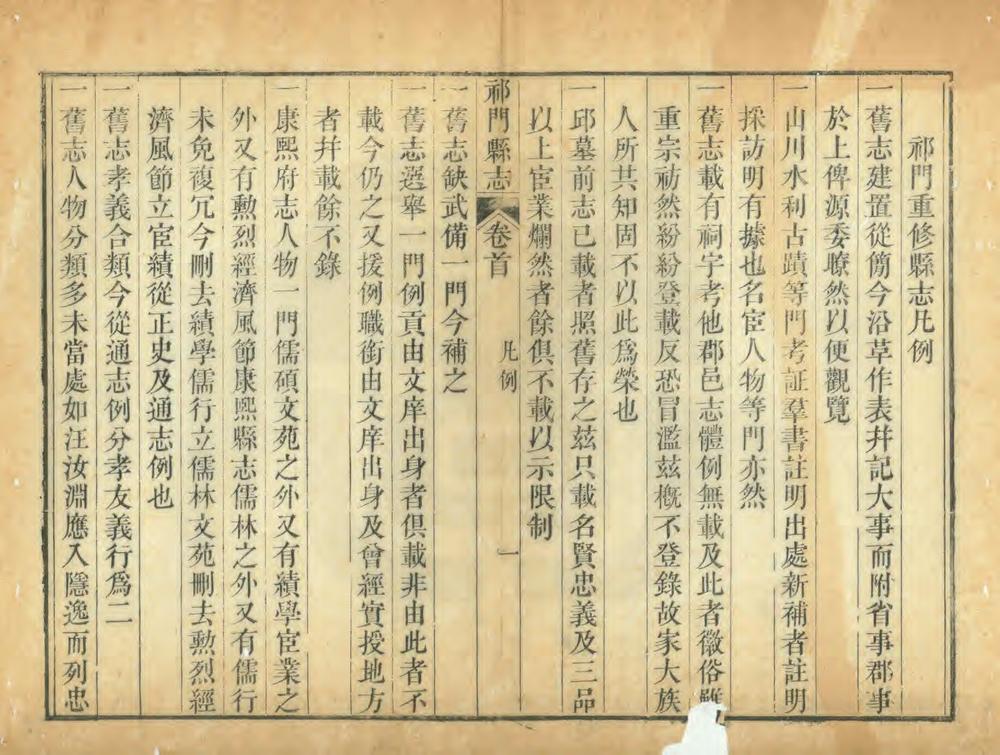 祁門重修縣志凡例
一舊志建置從簡今沿革作表幷記大事而附省事郡事
於上俾源委瞭然以便觀覽
一山川水利古蹟等門考証羣書註明出處新補者註明
採訪明有據也名宦人物等門亦然
一舊志載有祠宇考他郡邑志體例無載及此者徽俗雖
重宗祊然紛紛登載反恐冒濫茲槪不登錄故家大族
人所共知固不以此爲榮也
一邱墓前志已載者照舊存之茲只載名賢忠義及三品
以上宦業爛然者餘俱不載以示限制
祁門縣志 卷首 凡例 一
一舊志缺武備一門今補之
一舊志選舉一門例貢由文庠出身者俱載非由此者不
載今仍之又援例職銜由文庠出身及曾經實授地方
者幷載餘不錄
一康熙府志人物一門儒碩文苑之外又有績學宦業之
外又有勲烈經濟風節康熙縣志儒林之外又有儒行
未免複冗今刪去績學儒行立儒林文苑刪去勲烈經
濟風節立宦績從正史及通志例也
一舊志孝義合類今從通志例分孝友義行爲二
一舊志人物分類多未當處如汪汝淵應入隱逸而列忠